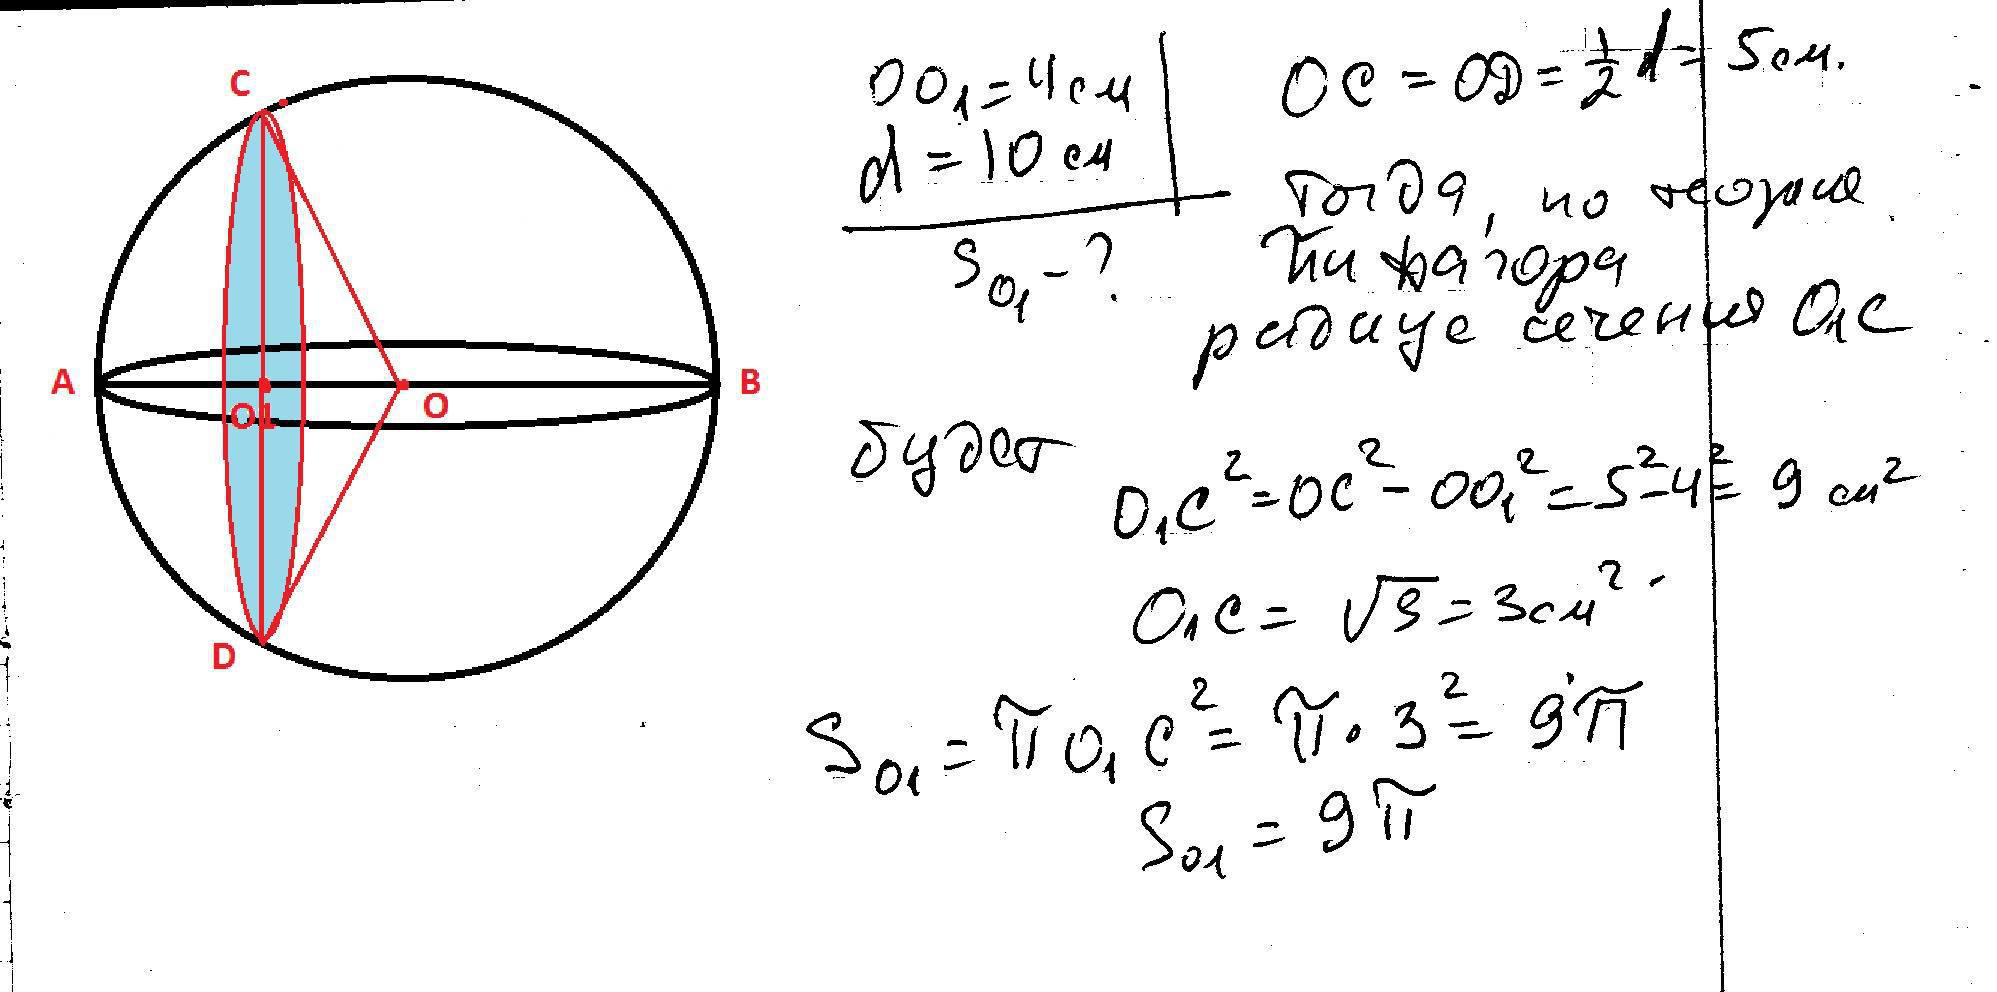 C
A
O1
O
B
D
OO₁ = 4 см
d = 10 см
S₀₁ - ?
OC = OD = 1/2 d = 5 см.
Тогда, по теореме
Пифагора
радиус сечения O₁C
будет
O₁C² = OC² - OO₁² = 5² - 4² = 9 см²
O₁C = √9 = 3 см².
S₀₁ = π O₁C² = π · 3² = 9π
S₀₁ = 9π